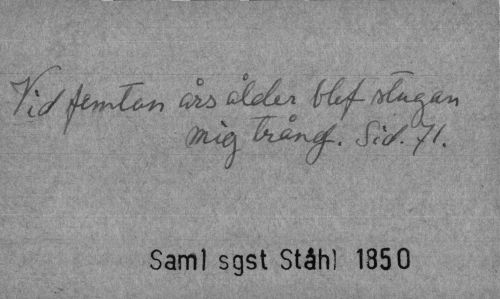 Vid femton års ålder blef stugan
mig trång. Sid. 71.
Saml sgst Ståhl 1850